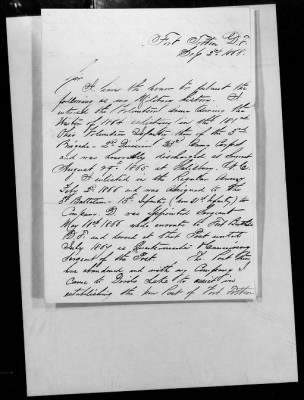 Fort Totten D.T.
Sept 2nd 1868.
Sir
I have the honor to submit the
following as my Military history. I
entered the Volunteer Service during the
Winter of 1864 enlisting in the 181st
Ohio Volunteer Infantry then of the 3rd
Brigade 2nd Division 23rd Army Corps
and was honorably discharged at
August 29th 1865 at Salisbury N.C.
I enlisted in the Regular Army
July 2d 1866 and was assigned to the
Battalion Infantry (now 31st Infantry) to
Company D, was appointed Sergeant
May 18th 1866 while enroute to Fort
D.T. and served at that Post until
July 1867 as Quartermaster & Commissary
Sergeant of the Post. The Post then
was abandoned and with my Company I
came to Devils Lake to assist in
establishing the new Post of Fort Totten